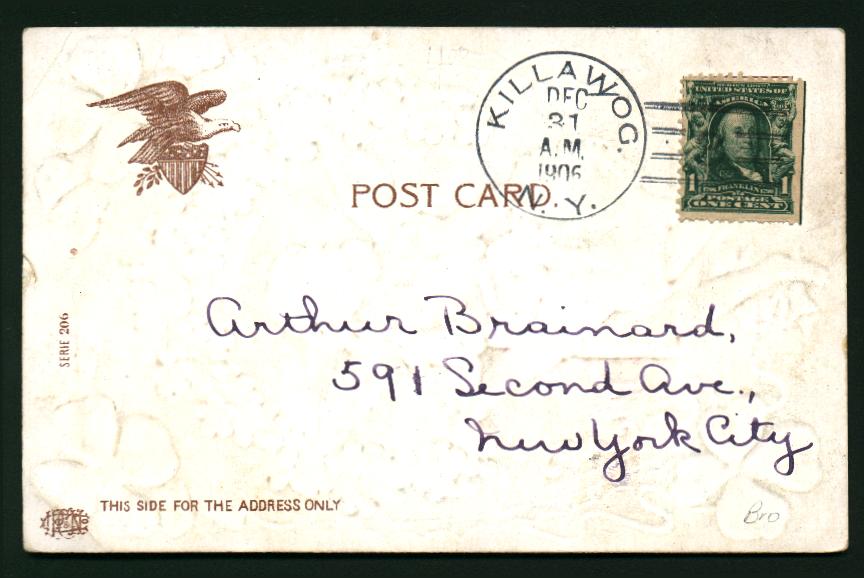 KILLAWOG.
DEC
31
A.M.
1906
N. Y.
UNITED STATES OF
AMERICA
1 FRANKLIN 1
POSTAGE
ONE CENT
POST CARD.
SERIE 206
Arthur Brainard,
591 Second Ave.,
New York City
THIS SIDE FOR THE ADDRESS ONLY
Bro